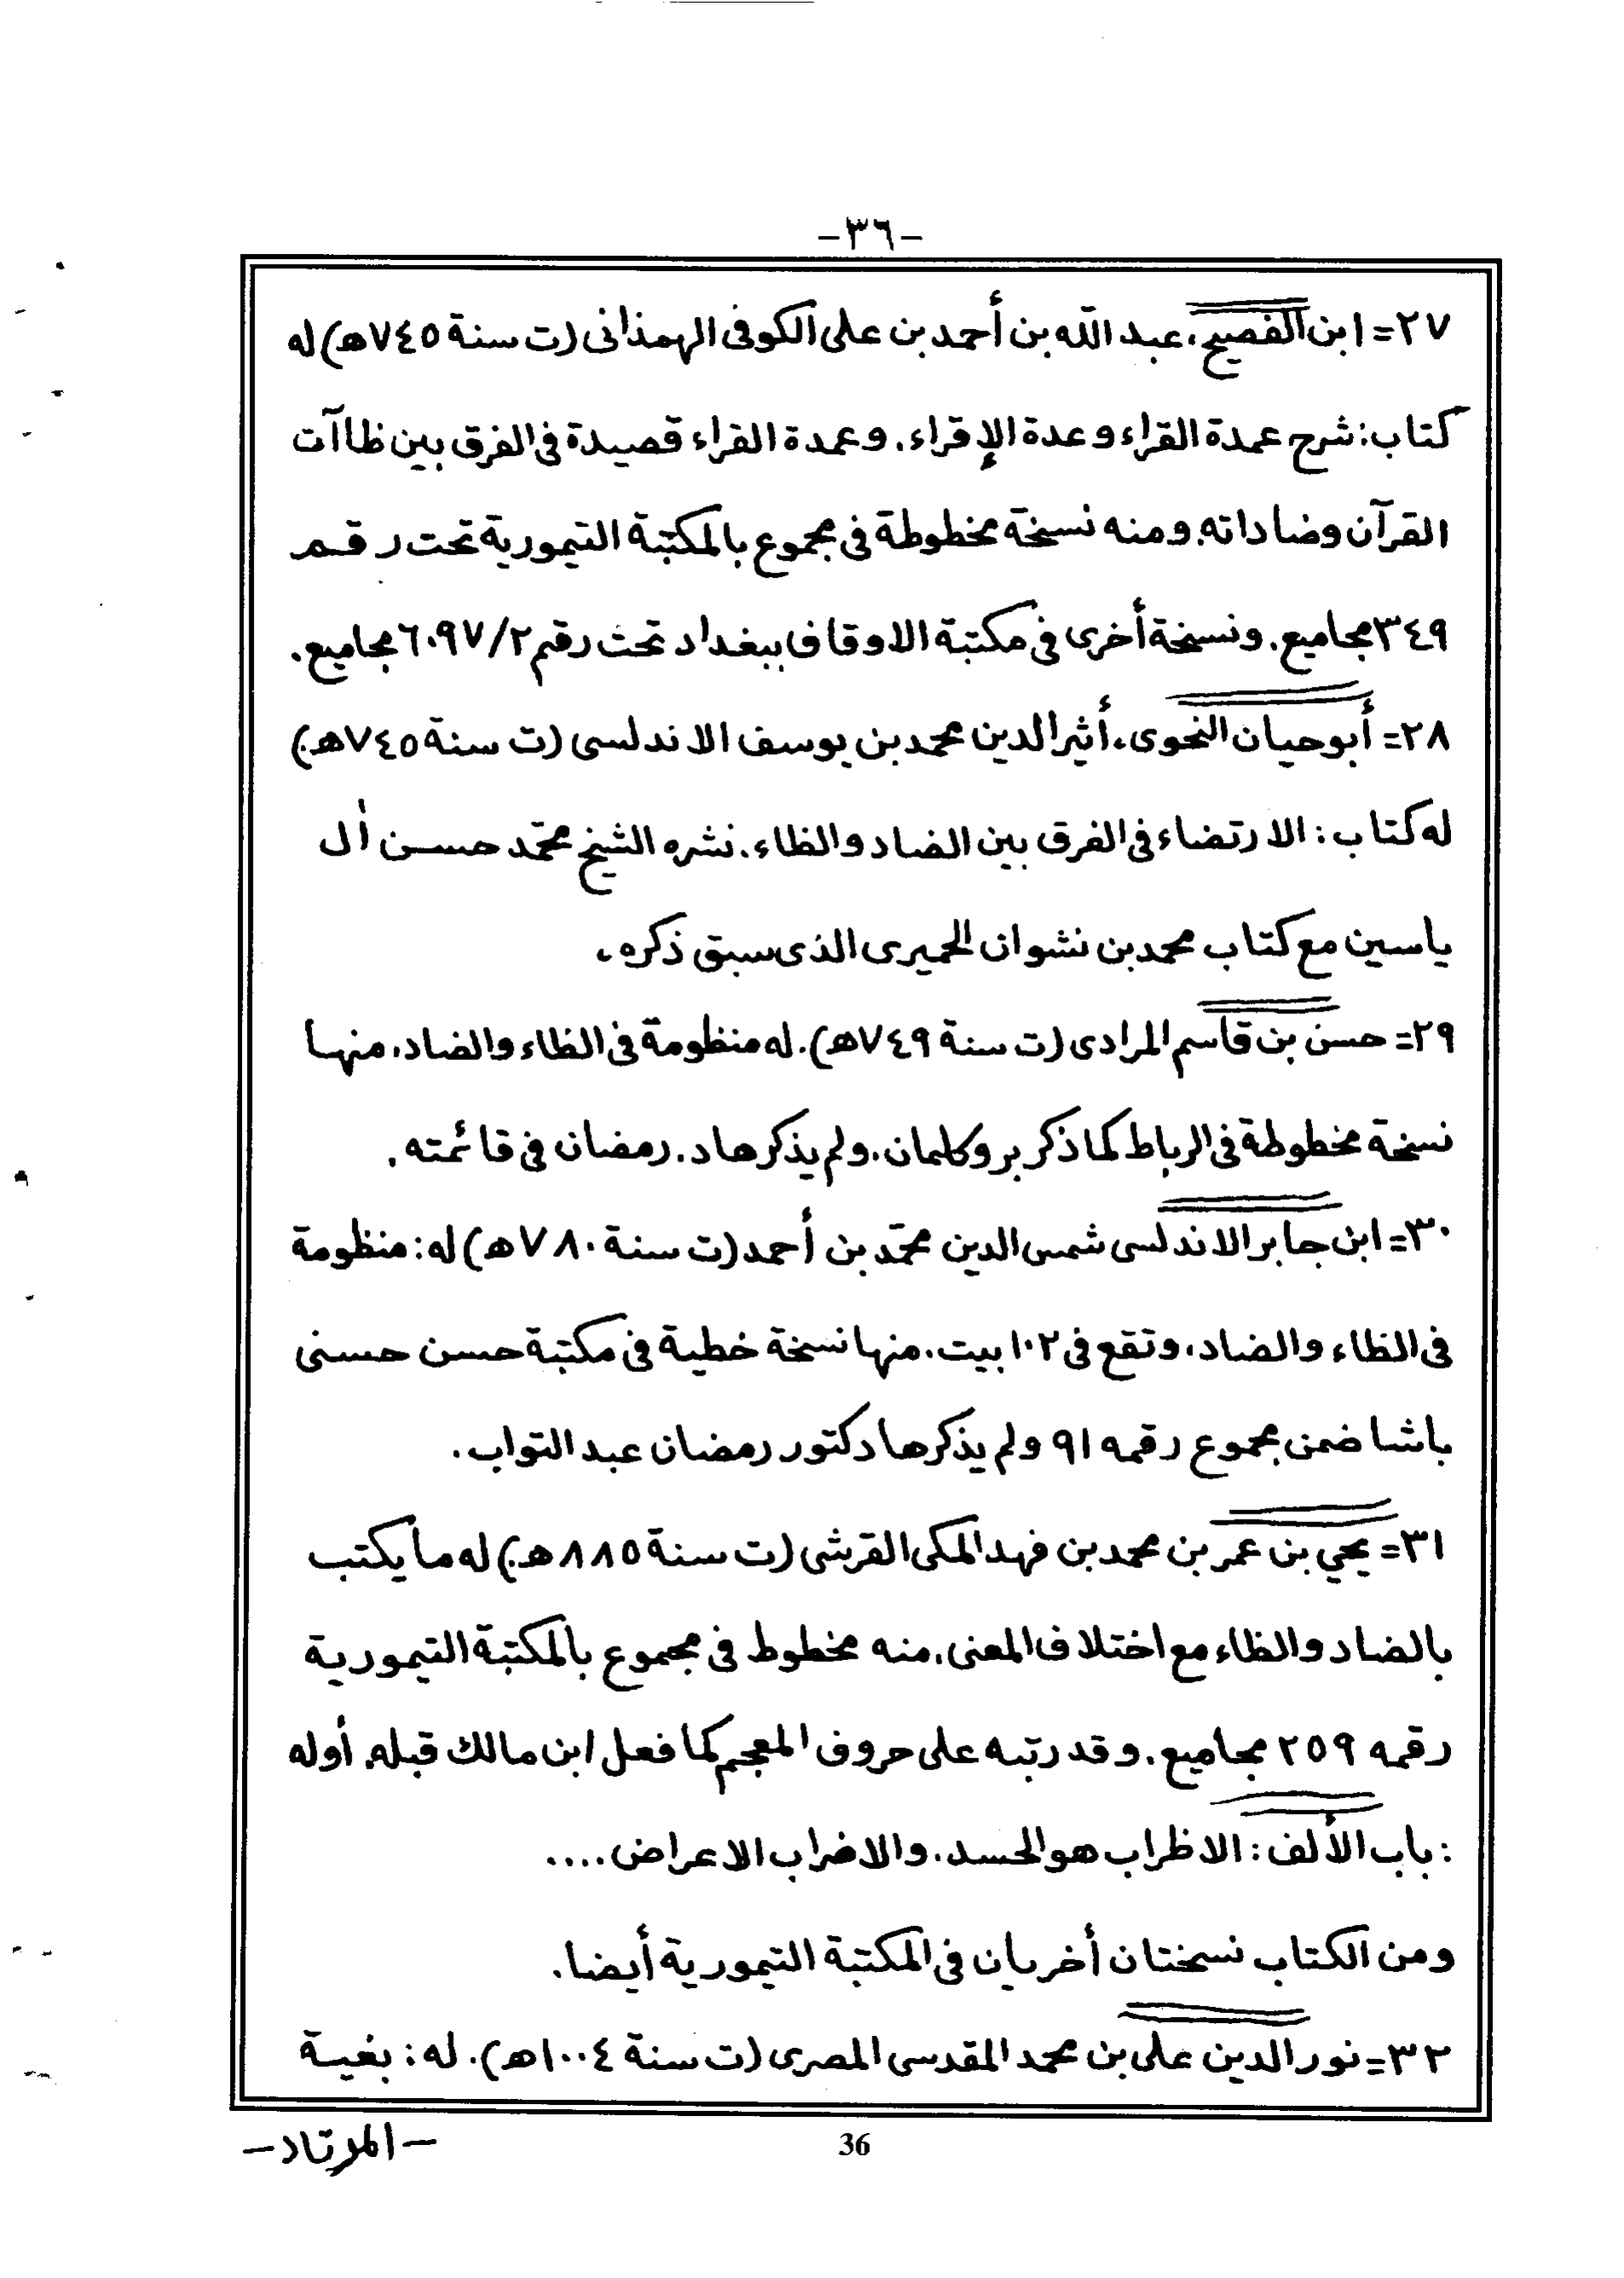 -٣٦-
٢٧= ابن الفصيح، عبد الله بن أحمد بن على الكوفى الهمذانى (ت سنة ٧٤٥ه) له
كتاب: شرح عمدة القراء وعدة الإقراء. وعمدة القراء قصيدة فى الفرق بين ظاآت
القرآن وضاداته. ومنه نسخة مخطوطة فى مجموع بالمكتبة التيمورية تحت رقم
٣٤٩ مجاميع. ونسخة أخرى فى مكتبة الاوقاف ببغداد تحت رقم ٦٠٩٧/٢ مجاميع.
٢٨= أبوحيان النحوى، أثير الدين محمد بن يوسف الاندلسى (ت سنة ٧٤٥ه.)
له كتاب: الارتضاء فى الفرق بين الضاد والظاء. نشره الشيخ محمّد حسن أل
ياسين مع كتاب محمد بن نشوان الحميرى الذى سبق ذكره.
٢٩= حسن بن قاسم المرادى (ت سنة ٧٤٩ه). له منظومة فى الظاء والضاد، منها
نسخة مخطوطة فى الرباط كما ذكر بروكلمان، ولم يذكرها د. رمضان فى قائمته.
٣٠= ابن جابر الاندلسى شمس الدين محمّد بن أحمد (ت سنة ٧٨٠ه) له: منظومة
فى الظاء والضاد، وتقع فى ١٠٢ بيت. منها نسخة خطية فى مكتبة حسن حسنى
باشا ضمن مجموع رقمه ٩١ ولم يذكرها دكتور رمضان عبد التواب.
٣١= يحي بن عمر بن محمد بن فهد المكى القرشى (ت سنة ٨٨٥ه.) له ما يكتب
بالضاد والظاء مع اختلاف المعنى، منه مخطوط فى مجموع بالمكتبة التيمورية
رقمه ٢٥٩ مجاميع. وقد رتبه على حروف المعجم كما فعل ابن مالك قبله. أوله
: باب الألف: الاظراب هو الحسد. والاضراب الاعراض....
ومن الكتاب نسختان أخريان فى المكتبة التيمورية أيضا.
٣٢= نور الدين على بن محمد المقدسى المصرى (ت سنة ١٠٠٤ه). له: بغية
-المرتاد-
36